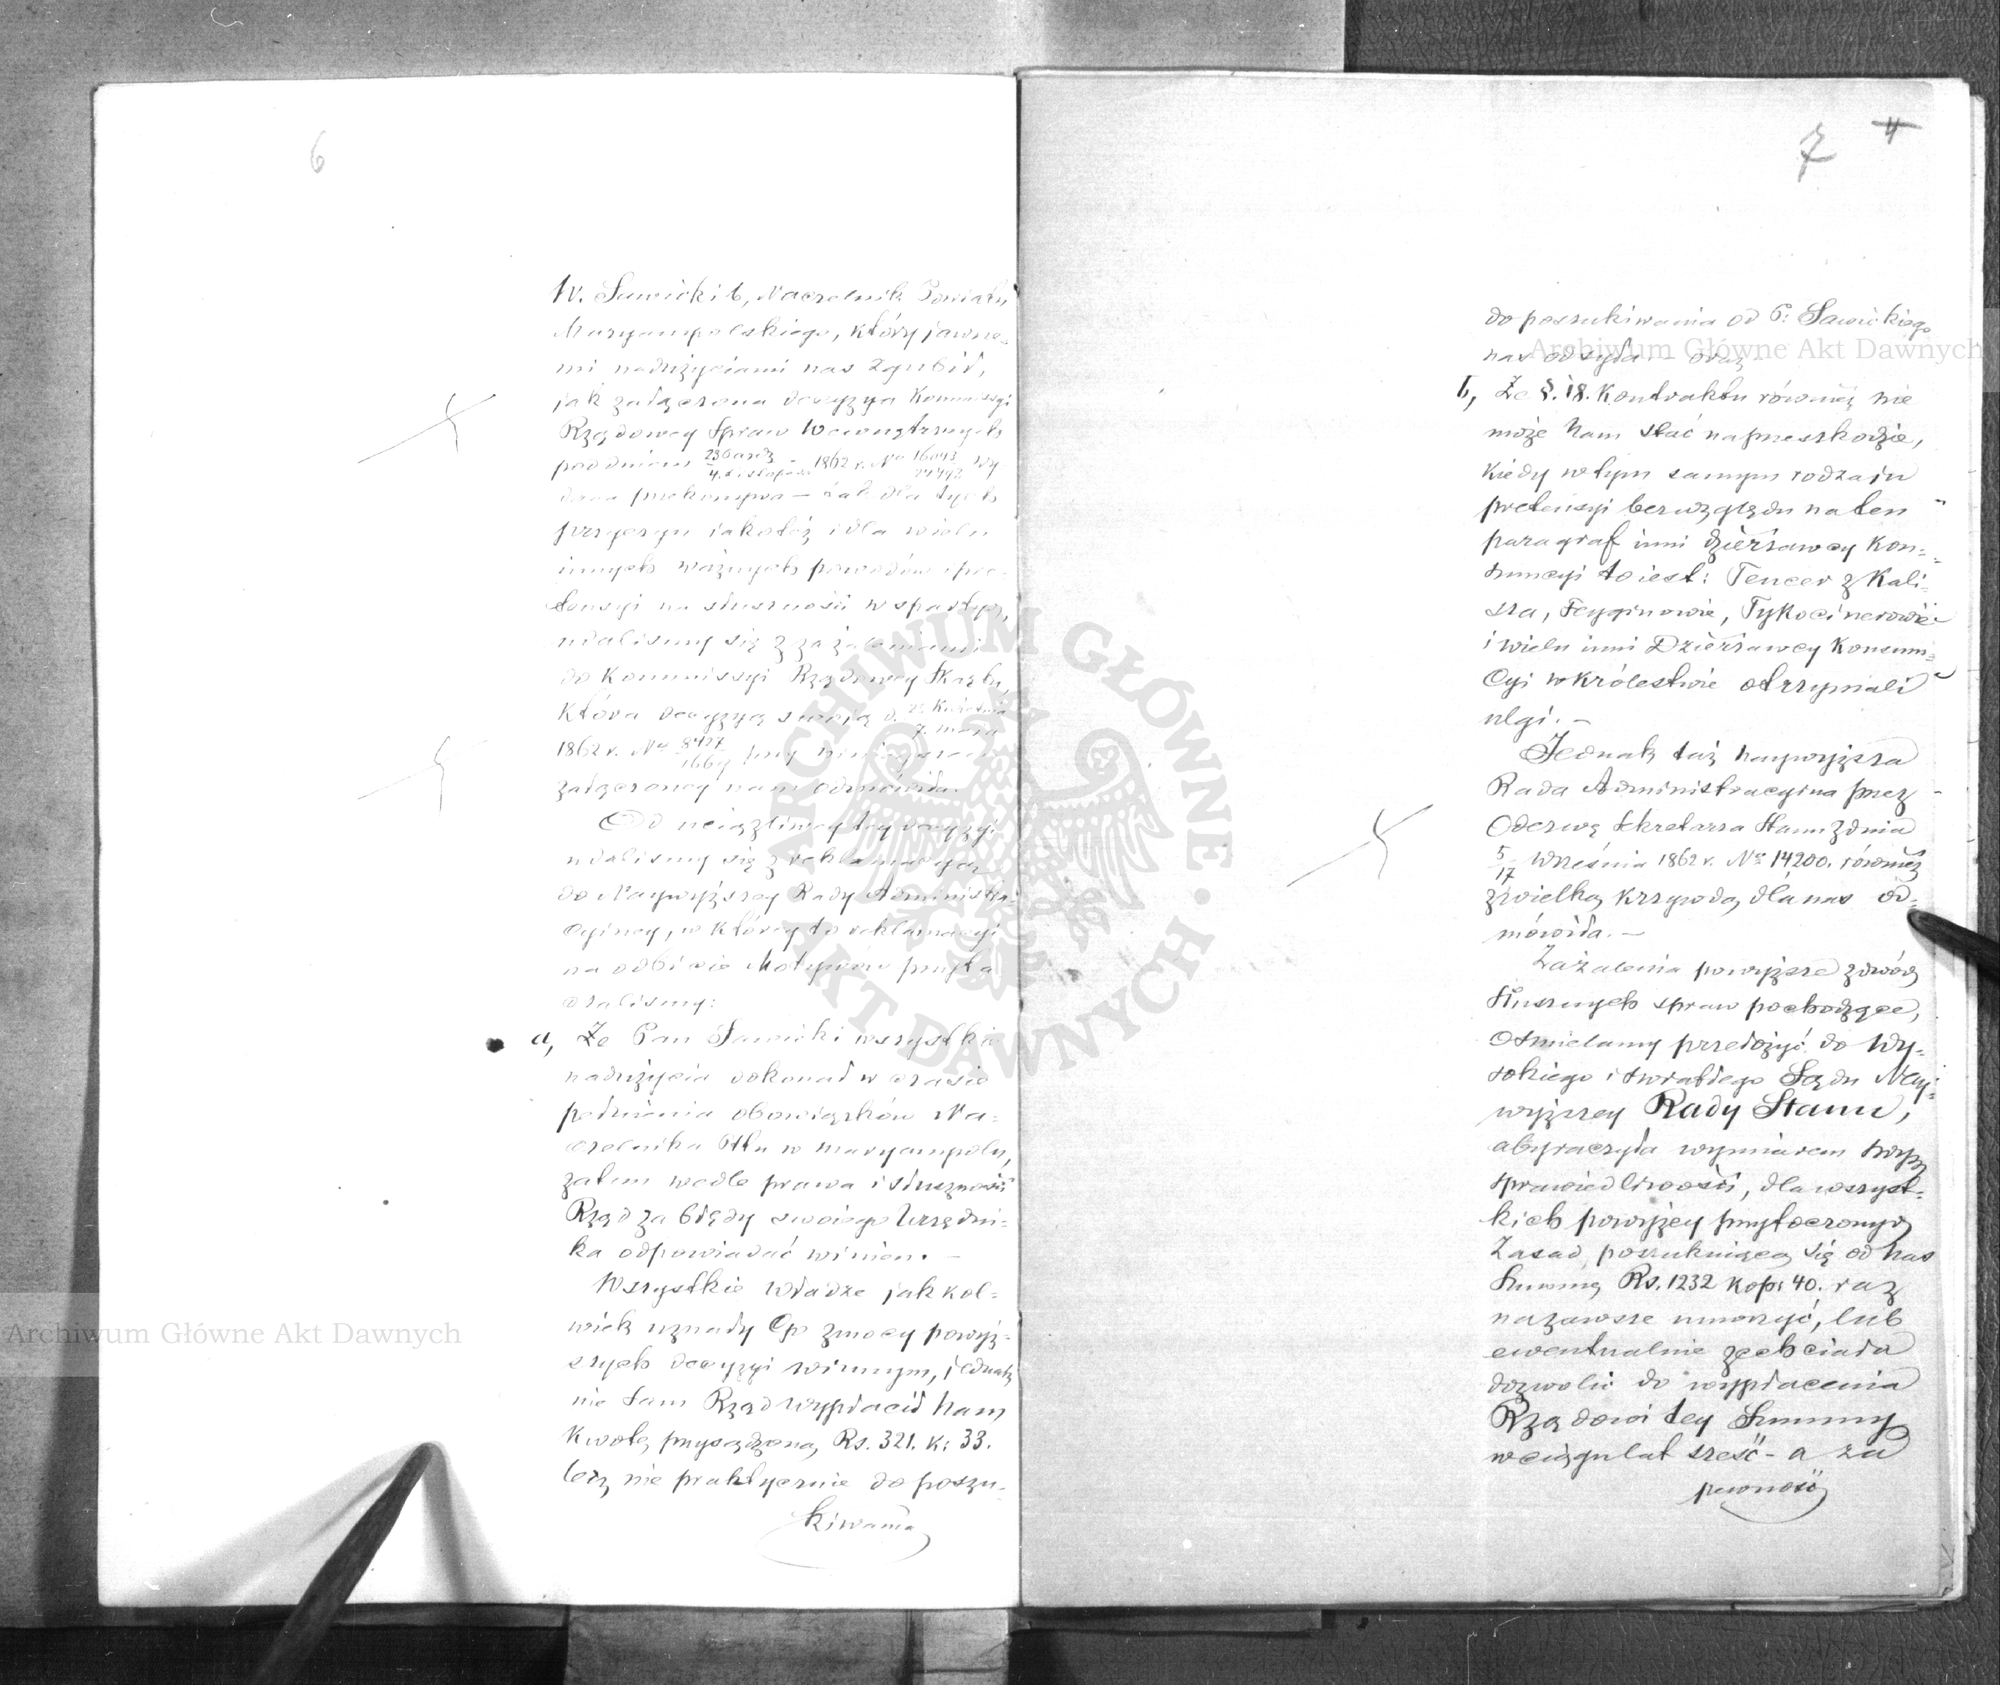 6
W. Sawicki b, Naczelnik Powiatu
Maryampolskiego, który jawne-
mi nadużyciami nas zgubił,
jak załączona decyzya Kommissyi
Rządowey Spraw Wewnętrznych
pod dniem 1862 r. No 16093 wy
dana przekonywa — dla tych
przyczyn jakoteż i dla wielu
innych ważnych powodów i pre-
tensyi na słuszności wspartych,
udaliśmy się z zażaleniami
do Kommissyi Rządowey Skarbu,
która decyzyą swoją d. 25 Kwietnia
7. Maja
1862 r. No 8427 przy niniejszem
załączoney nam odmówiła.
Od uciążliwey tey decyzyi
udaliśmy się z reklamacyą
do Naywyższey Rady Administra-
cyiney, w którey to reklamacyi
na odbicie Motywów przyta
czaliśmy:
a, Że Pan Sawicki wszystkie
nadużycia dokonał w czasie
pełnienia obowiązków Na-
czelnika Ptu w Maryampolu,
zatem wedle prawa i słuszności
Rząd za błędy swoiego Urzędni-
ka odpowiadać winien. —
Wszystkie Władze jakkol-
wiek uznały Go z mocy powyż-
szych decyzyi winnym, jednak
nie sam Rząd wypłacił nam
kwotę przysądzoną Rs. 321. k: 33.
lecz nie praktycznie do poszu-
kiwania
7 4
do poszukiwania od P: Sawickiego
nas odsyła — oraz
b, Że §. 18. Kontraktu również nie
może nam stać na przeszkodzie,
kiedy w tym samym rodzaju
pretensyi bez względu na ten
paragraf inni dzierżawcy Kon-
sumcyi to iest: Tencer z Kali-
sza, Feyginowie, Tykocinerowie
i wielu inni Dzierżawcy Konsum-
cyi w Królestwie otrzymali
ulgi. —
Jednak taż naywyższa
Rada Administracyina przez
Odezwę Sekretarza Stanu z dnia
5/17 Września 1862 r. No 14200. również
z wielką krzywdą dla nas od-
mówiła. —
Zażalenia powyższe z dwóch
słusznych spraw pochodzące,
ośmielamy przedożyć do Wy-
sokiego i światłego Sądu Nay-
wyższey Rady Stanu,
aby raczyła wymiarem swey
sprawiedliwości, dla wszyst-
kich powyżey przytoczonych
Zasad, poszukuiącą się od nas
Summę Rs. 1232 kop: 40. raz
na zawsze umorzyć, lub
ewentualnie zechciała
dozwolić do wypłacenia
Rządowi tey Summy
w ciągu lat sześć - a za
pewność
Archiwum Główne Akt Dawnych
Archiwum Główne Akt Dawnych
ARCHIWUM GŁÓWNE · AKT DAWNYCH ·